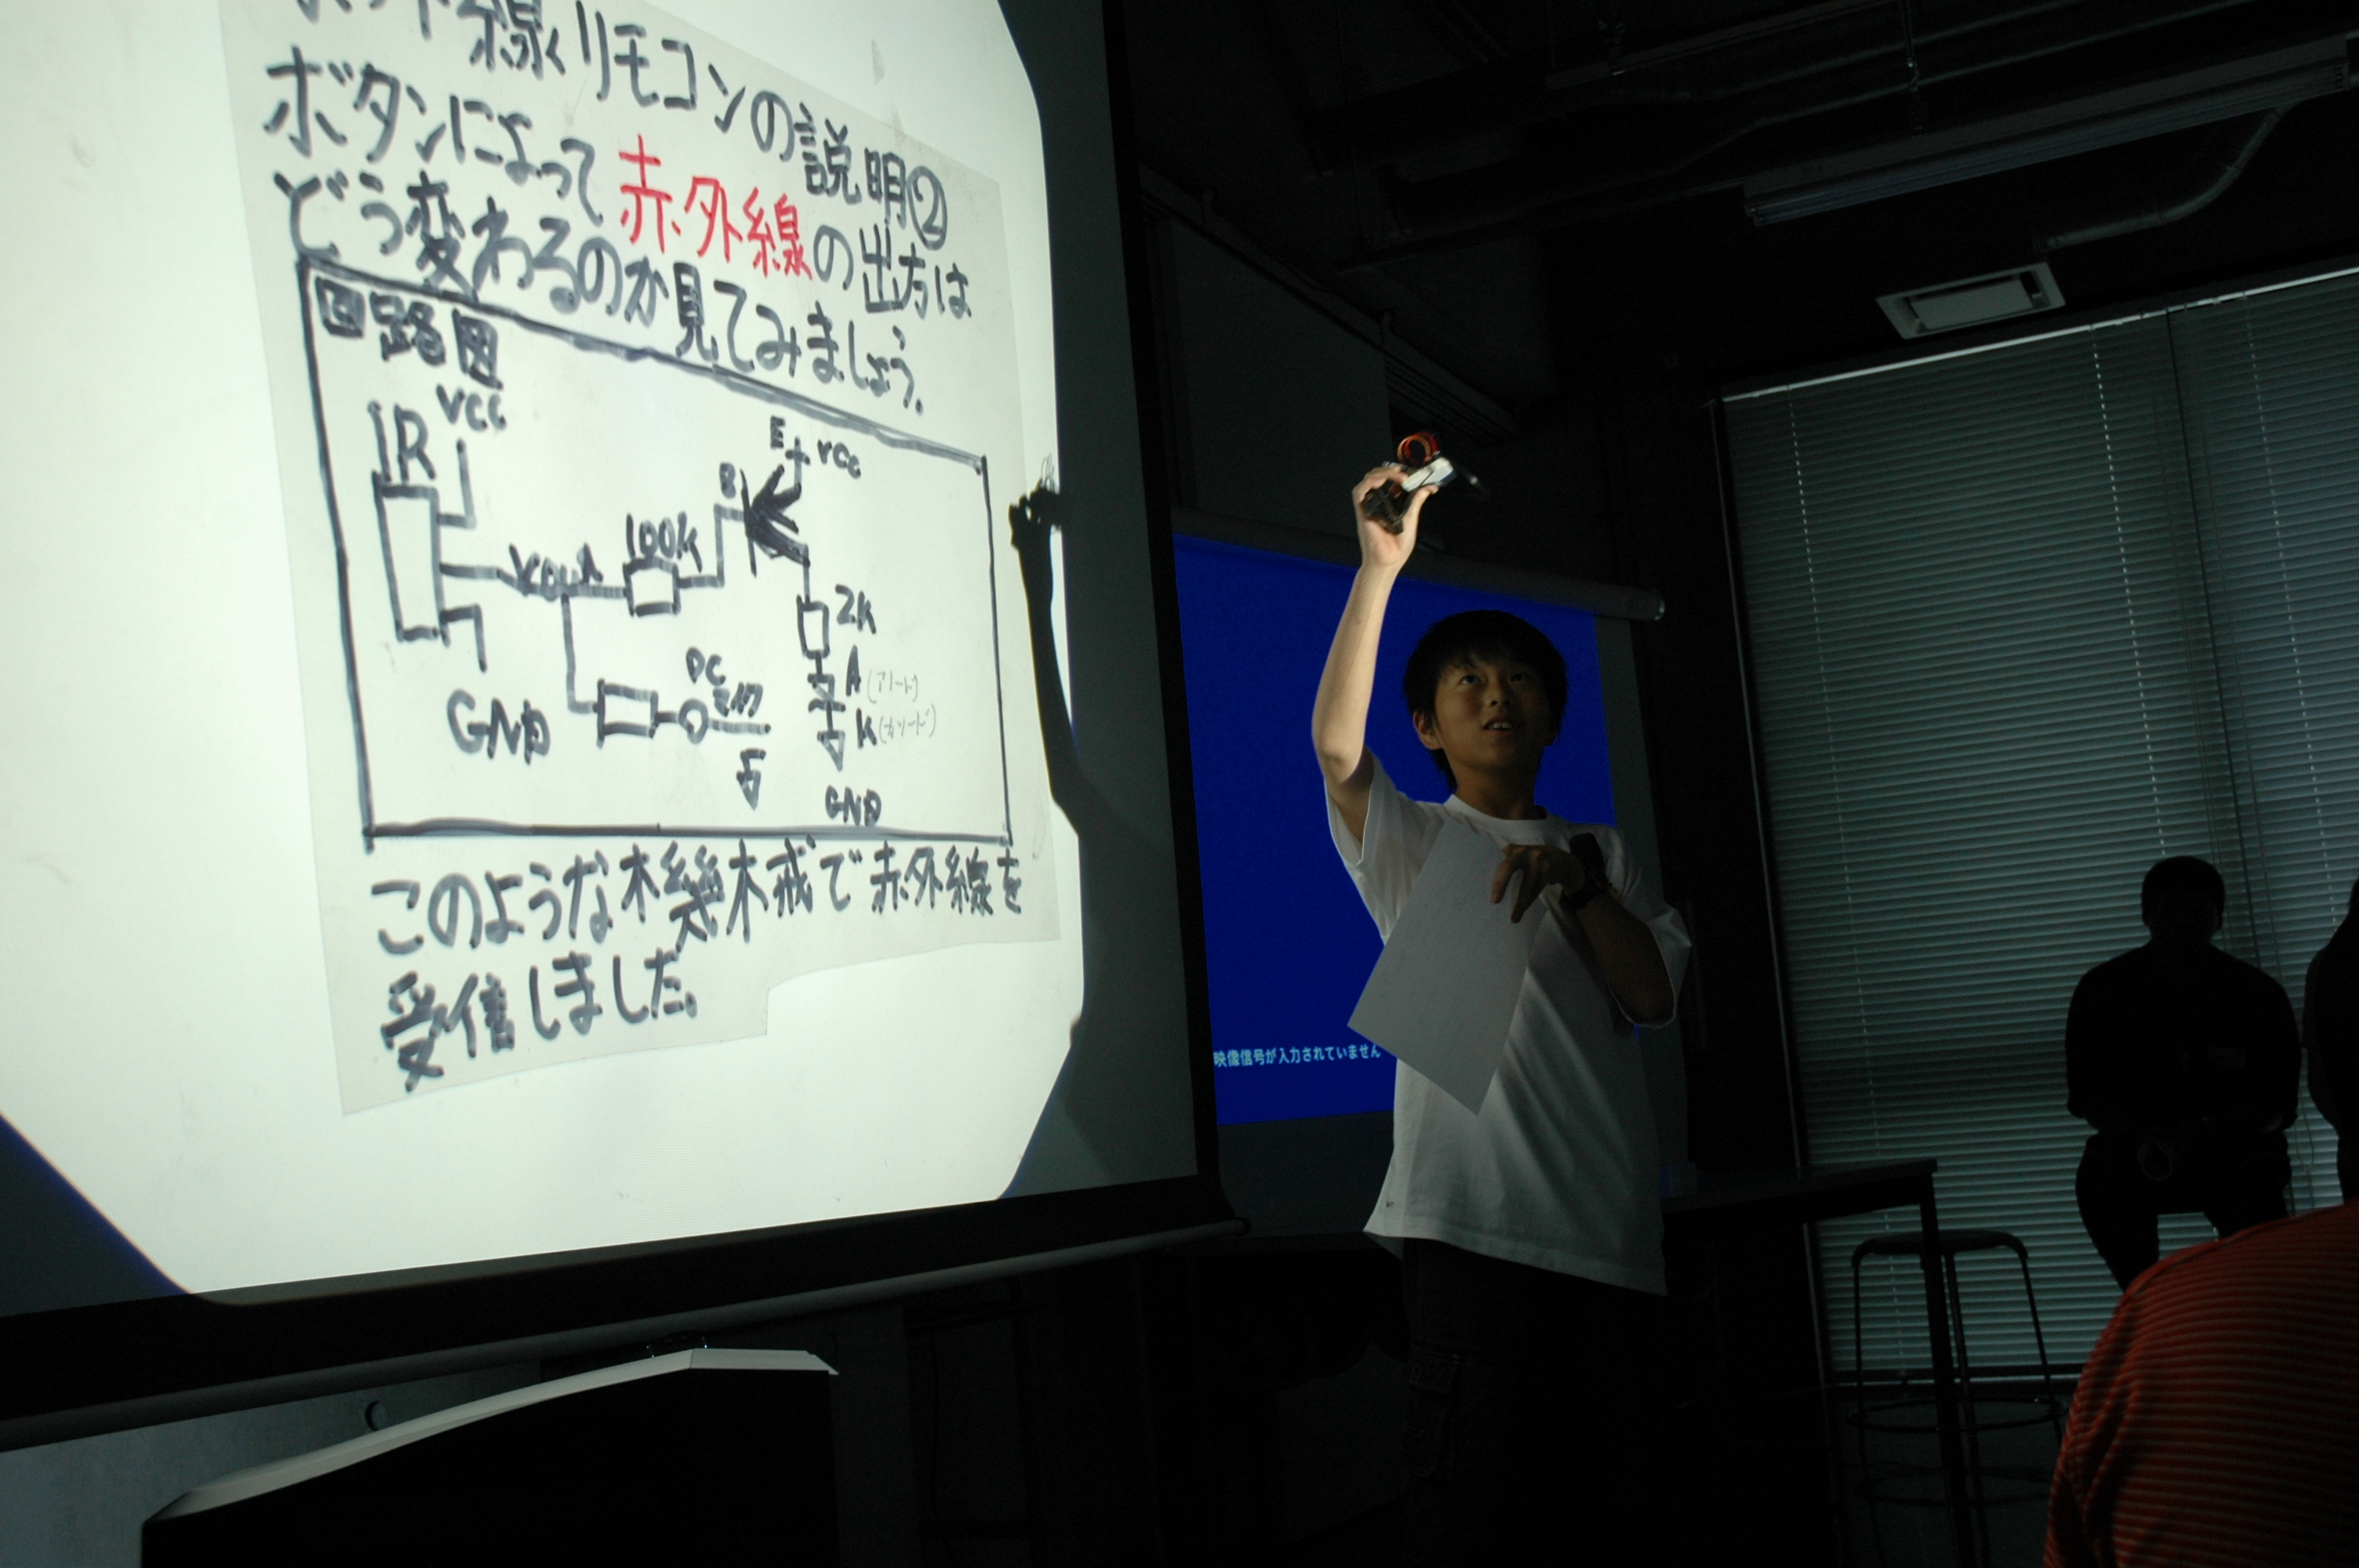 外線リモコンの説明②
ボタンによって赤外線の出方は
どう変わるのか見てみましょう。
回路図
IR
VCC
Vout
GND
100k
B
E
VCC
2K
A(アノード)
K(カソード)
GND
DC
このような機械で赤外線を
受信しました。
映像信号が入力されていません